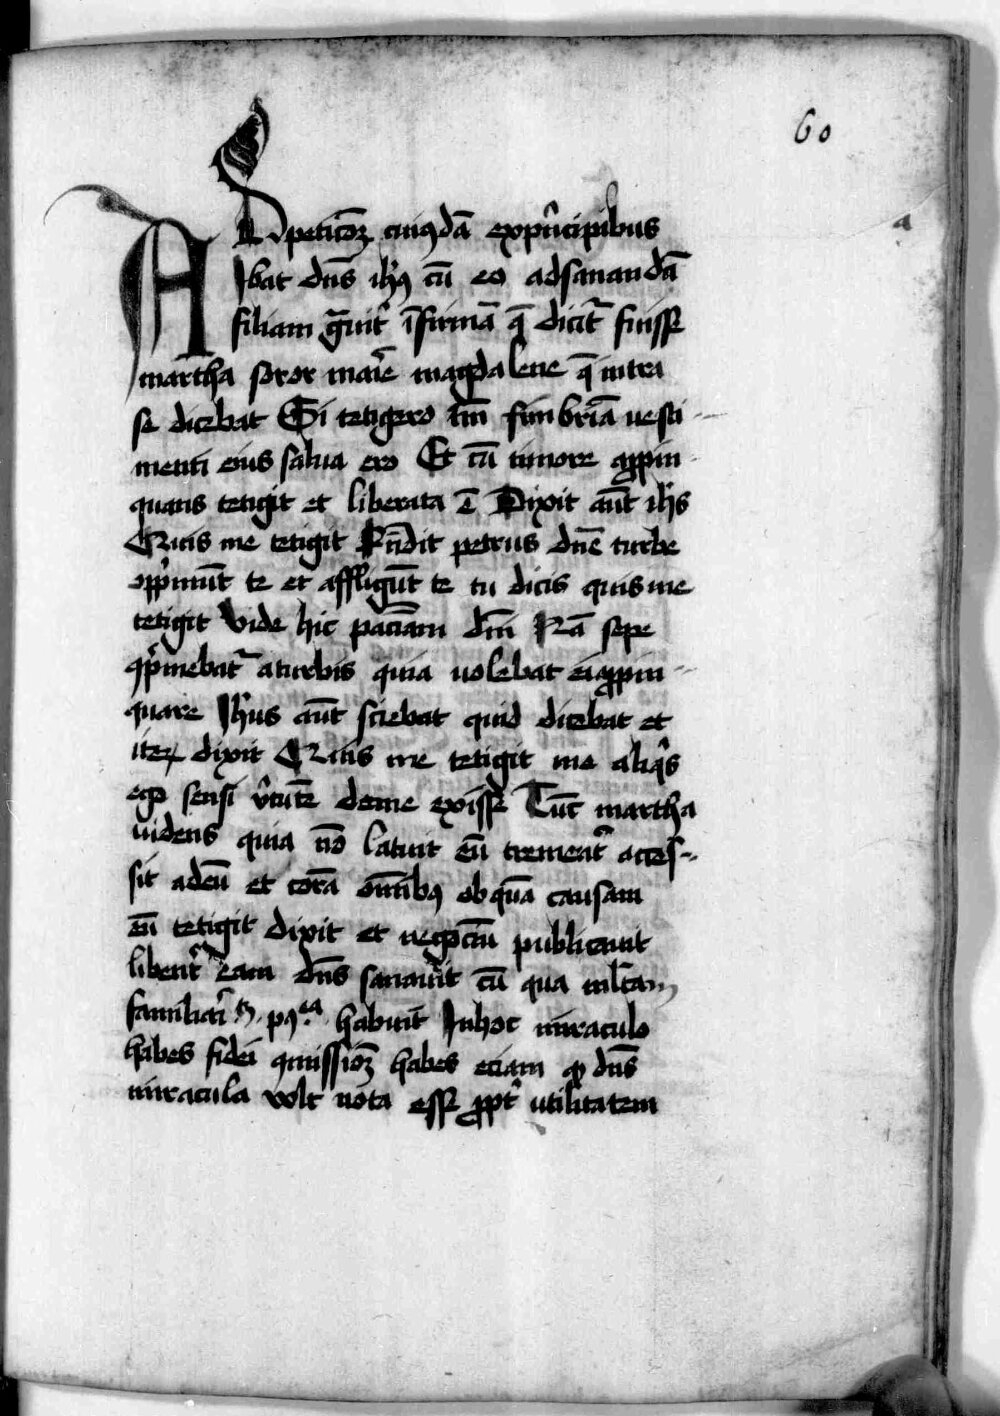 60
a
AD peticōꝫ cuiꝰdā expͥncipibus
Ibat dn̄s ih̄ꝰ cū eo adsanandā
filiam g̃uit̾ īfirmā q̄ dicit᷑ fuisse
martha soror marie magdalene q̄ intra
se dicebat Si tetigero tm̄ fimbriā uesti-
menti eius salua ero Et cū timore aꝓpin-
quans tetigit et liberata ē Dixit aūt ih̄s
Quis me tetigit Rn̄dit petrus dn̄e turbe
opp̾mūt te et affligūt te tu dicis quis me
tetigit Vide hic paciā̄m dn̄i Nā sepe
opp̾mebat᷑ aturbis quia uolebāt ei aꝓpin-
quare Ih̄us aūt sciebat quid dicebat et
iteꝝ dixit Quis me tetigit me aliqͥs
ego sensi v̾tutē deme exisse Tūc martha
uidens quia nō latuit eū tremēs acces-
sit adeū et corā om̄ībꝰ ob quā causam
eū tetigit dixit et negociū publicauit
libent̾ eam dn̄s sanauit cū qua mltam
familiari p̾ habuit Inhoc miraculo
habes fidei habes eciam ꝙ dn̄s
miracula vult nota esse ꝓpt̾ utilitatem